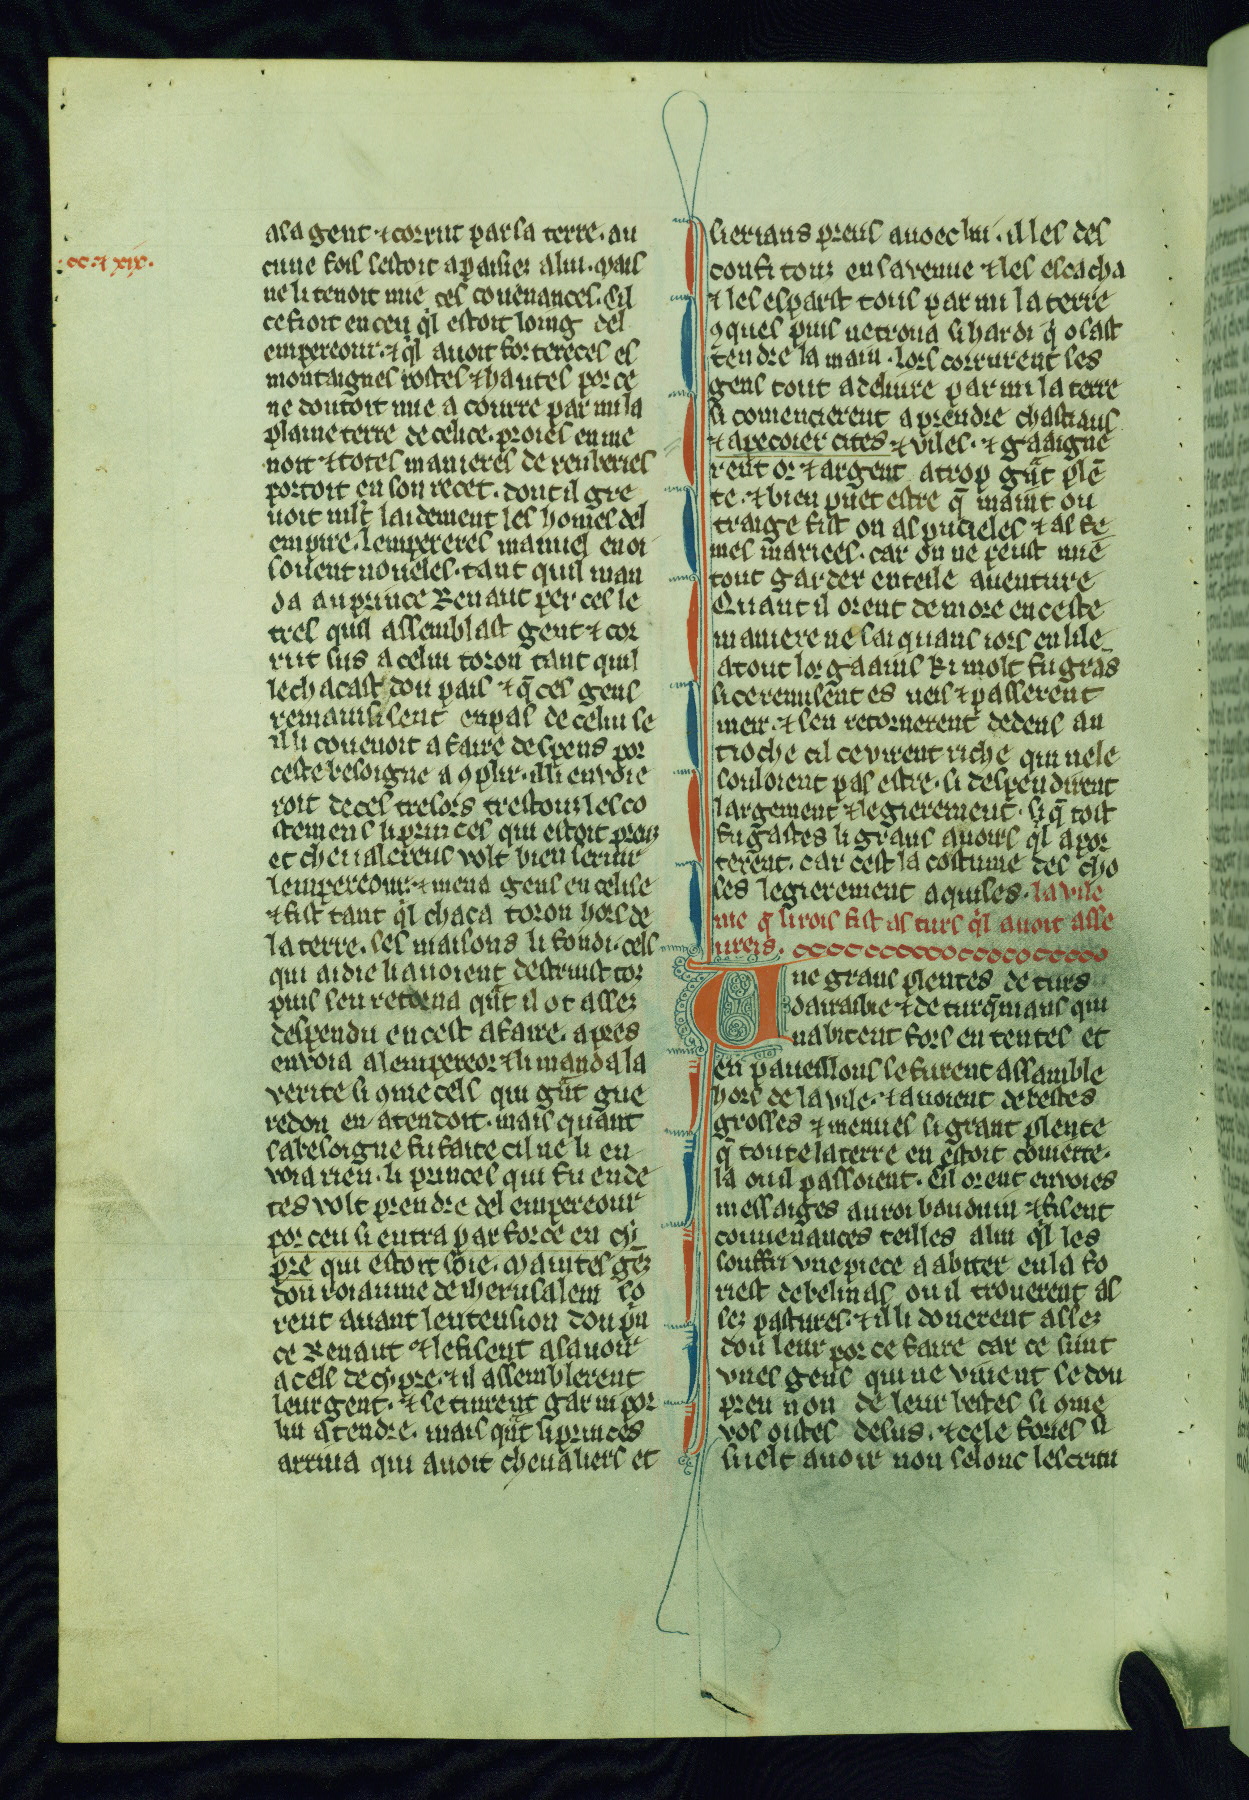 .cc. et xix.
asa gent ⁊ corrut par sa terre. au
cune fois sestoit apaisiez a lui. mais
ne li tenoit mie ces couenances. Cil
ce fioit en ceu q'l estoit loing del
empereour. ⁊ q'l auoit fortereces es
montaignes rostes ⁊ hautes por ce
ne doutoit mie a courre par mi la
plaine terre de celice. proies en me
noit ⁊ totes manieres de reuberies
portoit en son recet. dont il gre
uoit mlt laidement les homes del
empire. lempereres manuel en oi
souent noueles. tant quil man
da au prince Renaut per ces le
tres quil assemblast gent ⁊ cor
rut sus a celui toron tant quil
lechacast dou pais ⁊ q̄ ces gens
remansissent en pas de celui se
il li couenoit a faire despens por
ceste besoigne a ꝯplir. illi enuoie
roit de ces tresors trestouz les co
stemens li princes qui estoit preuz
et cheualereus volt bien seruir
lempereour ⁊ mena gens en celise
⁊ fist tant q'l chaca toron hors de
la terre. ses maisons li fondi. cels
qui aidie li auoient destruist toz
puis sen retorna qūt il ot assez
despendu en cest afaire. apres
enuoia al empereor ⁊ li manda la
verite si ꝯme cels qui gūt gue
redon en atendoit. mais quant
sa besoigne fu faite cil ne li en
uoia rien. li princes qui fu en de
tes volt prendre del empereour
por ceu si entra par force en cy
pre qui estoit soie. Maintes gēz
dou roiaume de iherusalem so
rent auant lentension dou p̄n
ce Renaut ⁊ le fisent asauoir
a cels de cypre. ⁊ il assemblerent
leur gent. ⁊ se tinrent garni por
lui atendre. mais qūt li princes
arriua qui auoit cheualiers et
sierians preus auoec lui. il les des
confi touz en sa venue ⁊ les escacha
⁊ les esparst tous par mi la terre
ꝯques puis ne troua si hardi q̄ osast
tendre la main. lors corrurent ses
gens tout a deliure par mi la terre
si comencierent a prendre chastiaus
⁊ apecoier cites ⁊ viles. ⁊ gaaigne
rent or ⁊ argent a trop gūt plē
te. ⁊ bien puet estre q̄ maint ou
traige fist on as puceles ⁊ as fe
mes mariees. car on ne peust mie
tout garder en teile auenture
Quant il orent demore en ceste
maniere ne sai quans iors en lile
a tout lor gaains ki molt fu gras
si ce remisent es neis ⁊ passerent
meir. ⁊ sen retornerent dedens an
tioche cil ce virent riche qui ne le
souloient pas estre. si despendirent
largement ⁊ legierement. si q̄ tost
fu gastes li grans auoirs q'l apor
terent. car cest la costume des cho
ses legierement aquises. la vile
nie q̄ li rois fist as turs q'l auoit asse
ureis.
Une grans plentes de turs
darrabie ⁊ de turq̄mans qui
nabitent fors en tentes et
en paueillons se furent assamble
hors de la vile. ⁊ auoient de bestes
grosses ⁊ menues si grant plente
q̄ toute la terre en estoit couerte.
la ou il passoient. Cil orent enuoies
messaiges au roi bauduin ⁊ fisent
couuenances teilles a lui q'l les
souffri vne piece a abiter en la fo
riest de belinas ou il trouerent as
sez pastures. ⁊ illi donerent assez
dou leur por ce faire car ce sunt
vnes gens qui ne viuent se dou
preu non de leur bestes si ꝯme
vos oistes desus. ⁊ cele fories si
suelt auoir non selonc lescritu